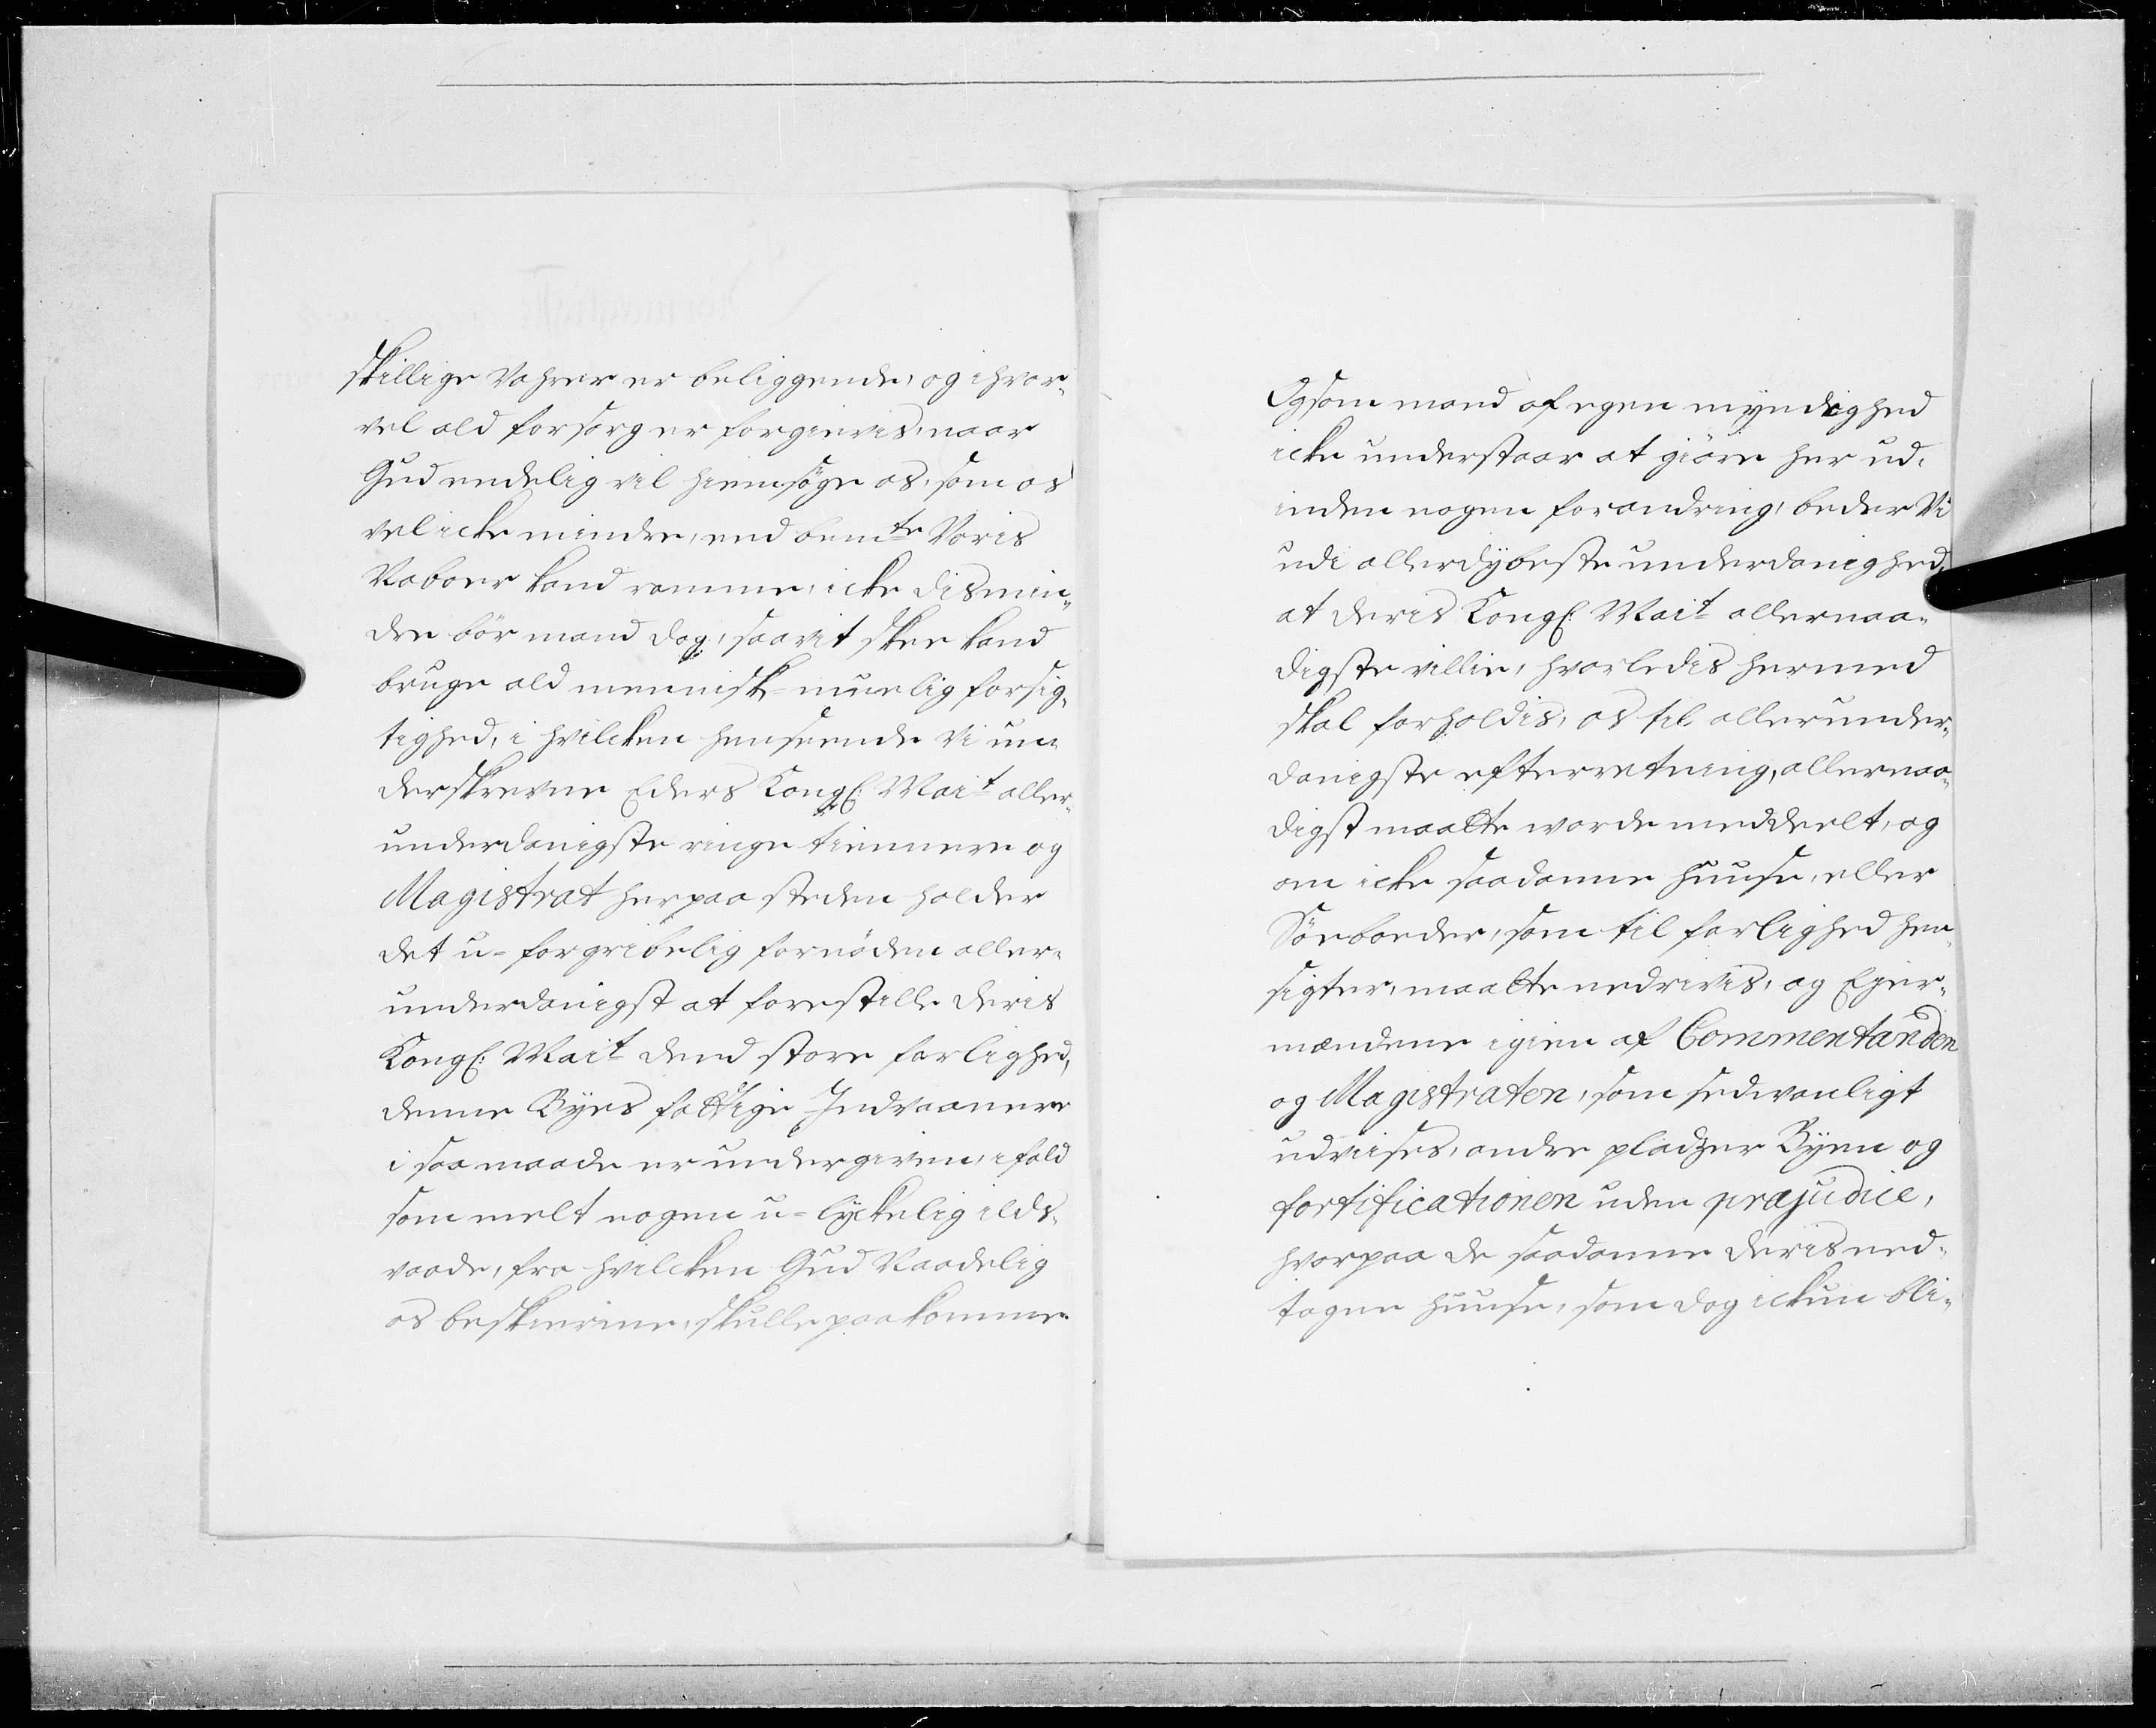 skillige Vahrer er beliggende, og ihvor-
vel ald forsorg er forgievis, naar
Gud endelig vil hiemsøge os, som os
vel icke mindre, end bemte Voris
Naboer kand ramme, icke dismin-
dre bør mand dog, saavit skee kand
bruge ald mennisk- muelig forsig-
tighed, i hvilcken henseende Vi un-
derskrevne Eders Kongl: Mait aller-
underdanigste ringe tiennere og
Magistrat her paa steden holder
det u-forgribelig fornöden aller-
underdanigst at forestille Deris
Kongl: Mait dend store farlighed,
denne Byes fattige Indvaanere
i saa maade er undergiven, ifald
som melt nogen u-lyckelig ilds-
vaade, fra hvilcken Gud Naadelig
os beskierme, skulle paakomme.
Og som mand af egen myndighed
icke understaar at giöre her ud-
inden nogen forandring, beder Vi
udi allerdybeste underdanighed,
at Deris Kongl: Mait allernaa-
digste villie, hvorledis hermed
skal forholdis, os til allerunder-
danigste efterretning, allernaa-
digst maatte worde meddeelt, og
om icke saadanne huuse, eller
Söeboeder, som til farlighed hen-
sigter, maatte nedrivis, og Eyer-
mændene igien af Commentanden
og Magistraten, som sedwanligt
udviises, andre pladzer Byen og
fortificationen uden præjudice,
hvorpaa de saadanne deris ned-
tagne huuse, som dog ickun bli-